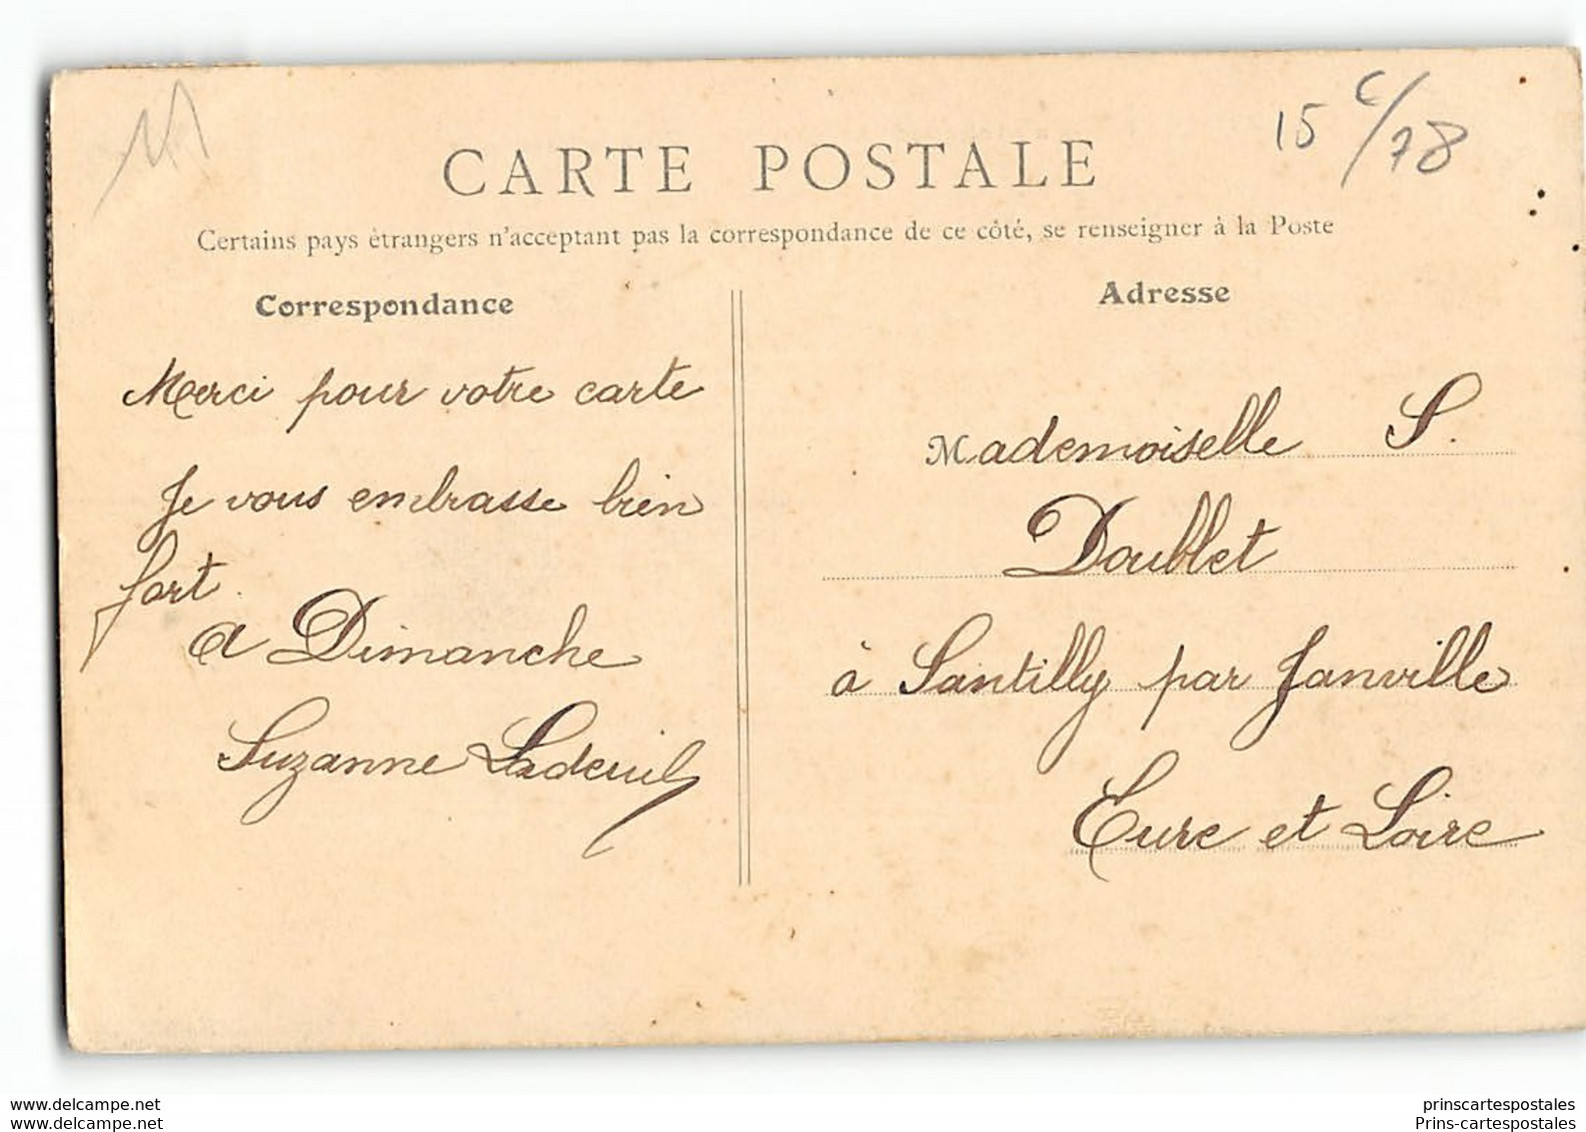 15 c/78
CARTE POSTALE
Certains pays étrangers n'acceptant pas la correspondance de ce côté, se renseigner à la Poste
Correspondance
Merci pour votre carte
Je vous embrasse bien
fort.
a Dimanche
Suzanne Ladeuil
Adresse
Mademoiselle S.
Doublet
à Santilly par Janville
Eure et Loire
www.delcampe.net
Prins-cartespostales.com
prinscartespostales
Prins-cartespostales